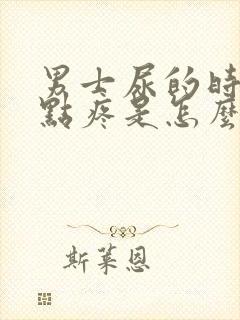 男士尿的時
點疼是怎麼
斯萊恩